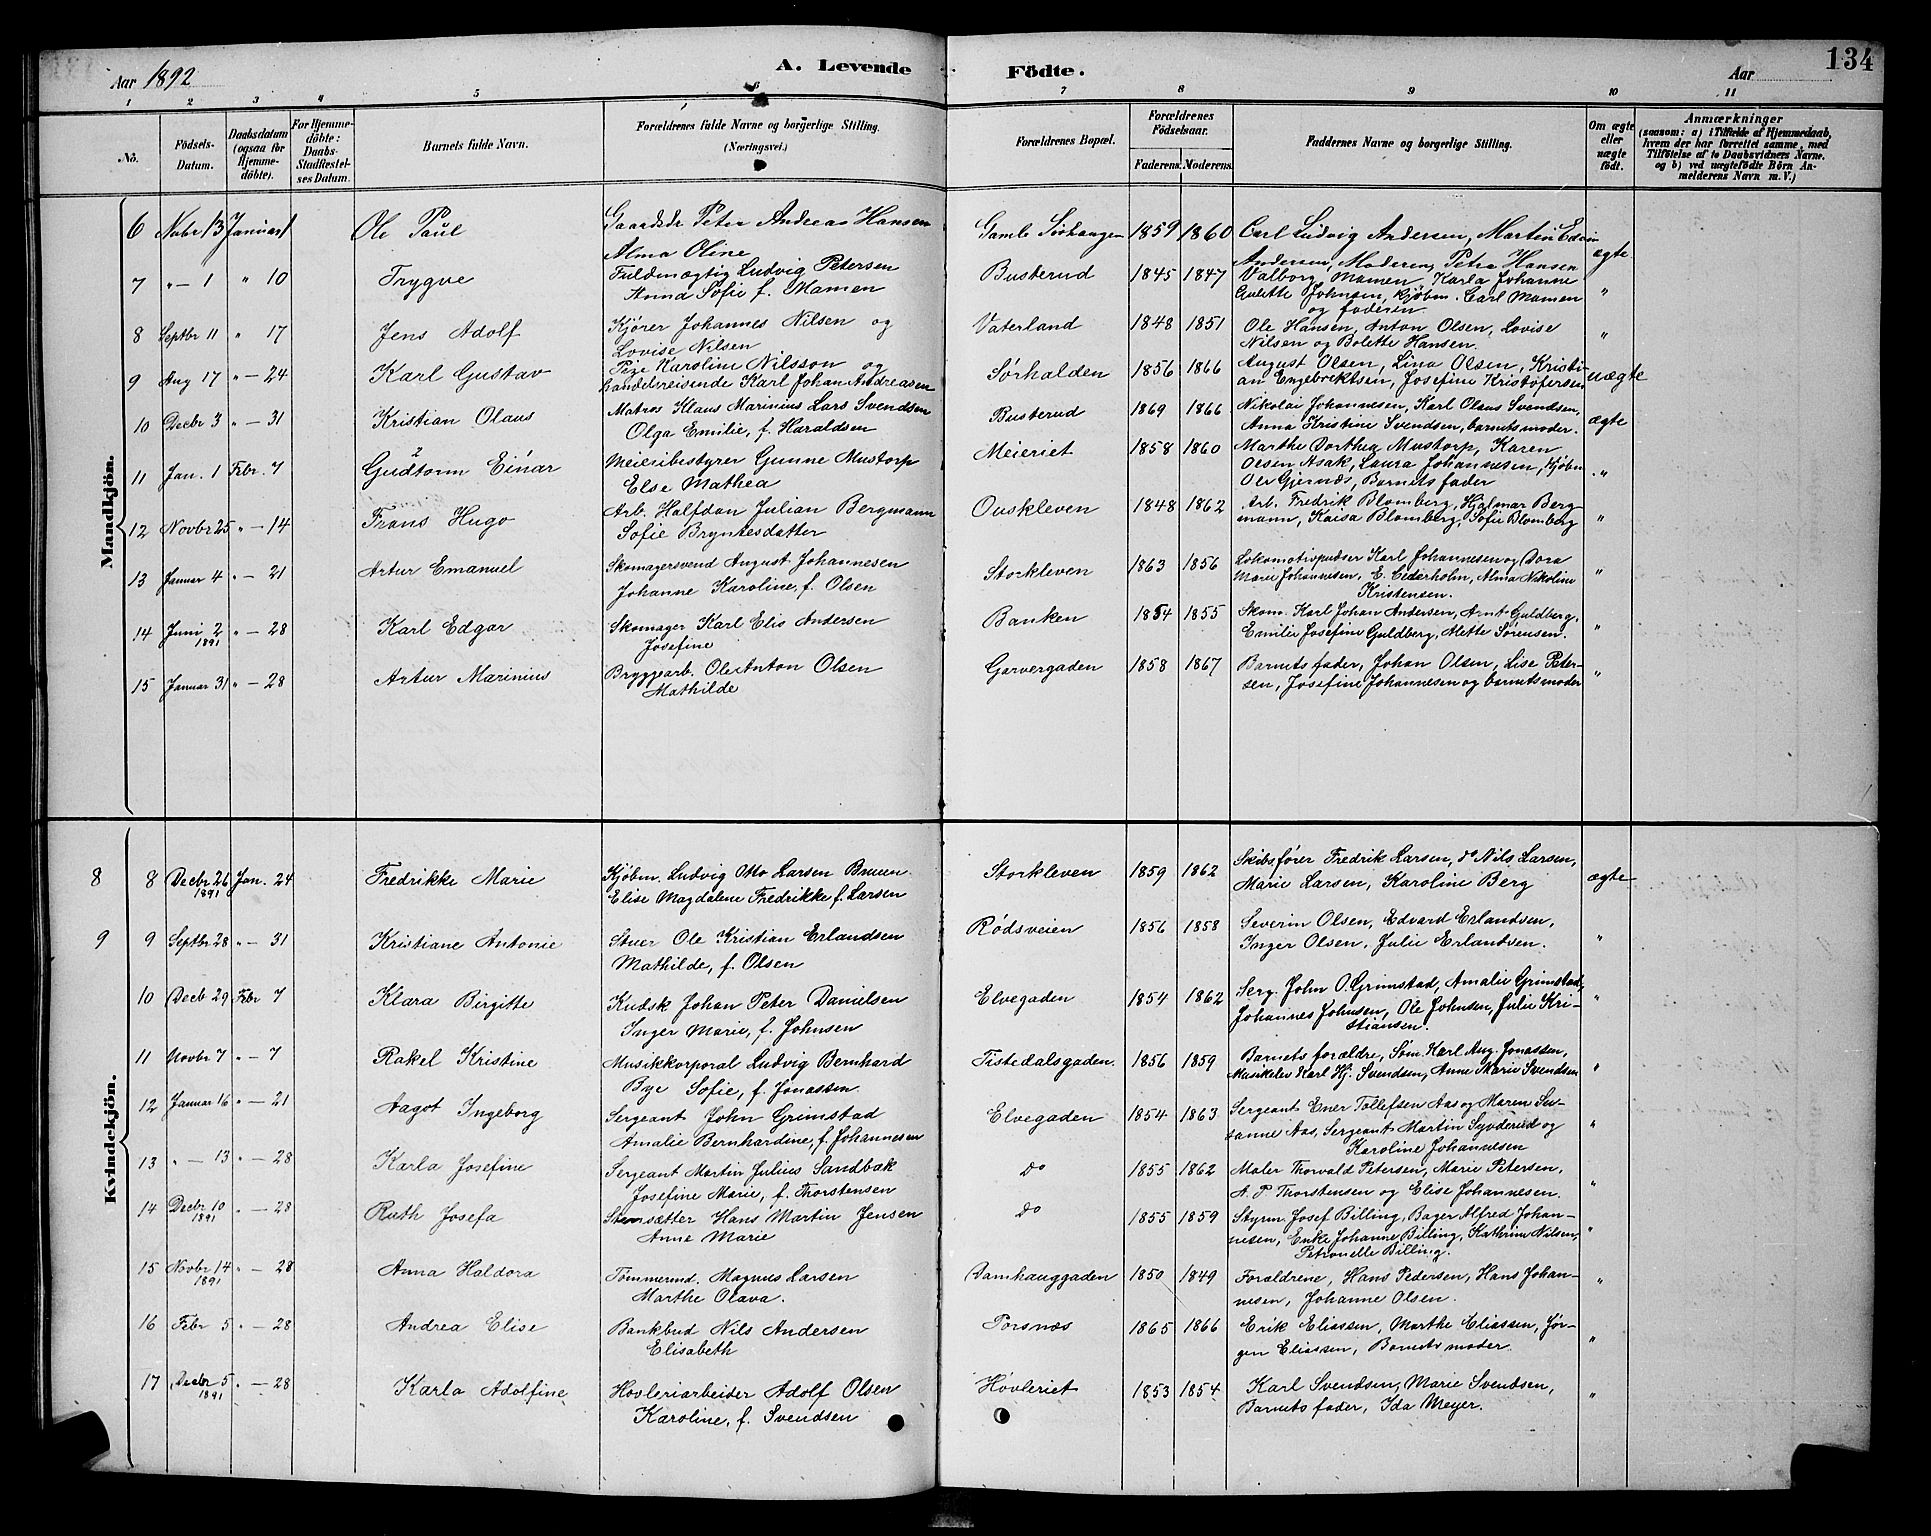 Aar 1892
A. Levende
Födte.
Aar
134
1 2 3 4 5 6 7 8 9 10 11
No.
Födsels-Datum.
Daabsdatum (ogsaa for Hjemme-döbte).
For Hjemme-döbte: Daabs-Stadfæstel-ses Datum.
Barnets fulde Navn.
Forældrenes fulde Navne og borgerlige Stilling. (Næringsvei.)
Forældrenes Bopæl.
Forældrenes Födselsaar.
Faderens. Moderens.
Faddernes Navne og borgerlige Stilling.
Om ægte eller uægte födt.
Anmærkninger
(saasom: a) i Tilfælde af Hjemmedaab, hvem der har forrettet samme, med Tilföielse af to Daabsvidners Navne, og b) ved uægtefödte Börn An-melderens Navn m. V.)
Mandkjön.
6 Nobr 13 Januar 1 Ole Paul Gaardsdr Peter Andreas Hansen Gamle Sørhaugen 1859 1860 Carl Ludvig Andersen, Martin Edvin
Alma Oline Andersen, Moderen, Petra Hansen ægte
7 " — 1 " 10 Trygve Fuldmægtig Ludvig Petersen Busterud 1845 1847 Valborg Mamen, Karla Johanne
Anna Sofie f. Mamen Gulette Johnsen, Kjøbm. Carl Mamen "
og faderen
8 Septbr 11 " 17 Jens Adolf Kjører Johannes Nilsen og Vaterland 1848 1851 Ole Hansen, Anton Olsen, Lovise
Lovise Nilsen Nilsen og Bolette Hansen. "
9 Aug 17 " — 24 Karl Gustav Pige Karoline Nilsson og Sørhalden 1856 1866 August Olsen, Lina Olsen, Kristi-
handelsreisende Karl Johan Andreasen an Engebrektsen, Josefine Kristofersen uægte
10 Decbr 3 " — 31 Kristian Olaus Matros Klaus Marinius Lars Svendsen Busterud 1869 1866 Nikolai Johannesen, Karl Olaus Svendsen,
Olga Emilie, f. Haraldsen Anna Kristine Svendsen, barnets moder. ægte
11 Jan. 1 Febr. 7 Gudtorm Einar Meieribestyrer Gunne Mustorp Meieriet 1858 1860 Marthe Dorthea Mustorp, Karen
Else Mathea Olsen Asak, Laura Johannesen, Kjøbm "
Ole Gjernæs, Barnets fader
12 Novbr 25 " — 14 Frans Hugo Arb. Halfdan Julian Bergmann Ouskleven 1848 1862 Arb. Fredrik Blomberg, Hjalmar Berg-
Sofie Bryntesdatter mann, Kaisa Blomberg, Sofie Blomberg "
13 Januar 4 " — 21 Artur Emanuel Skomagersvend August Johannesen Storkleven 1863 1856 Lokomotivpudser Karl Johannesen og Dora
Johanne Karoline, f. Olsen Marie Johannesen, E. Cederholm, Alma Nikoline "
Kristensen.
14 Juni 2 " — 28 Karl Edgar Skomager Karl Elis Andersen Banken 1854 1855 Skom. Karl Johan Andersen, Arnt Guldberg,
1891 Josefine Emilie Josefine Guldberg, Alette Sørensen. "
15 Januar 31 " — 28 Artur Marinius Bryggearb. Ole Anton Olsen Garvergaden 1858 1867 Barnets fader, Johan Olsen, Lise Peter-
Mathilde sen, Josefine Johannesen og barnets moder "
Kvindekjön.
8 8 Decbr 26 Jan. 24 Fredrikke Marie Kjøbm. Ludvig Otto Larsen Bruen. Storkleven 1859 1862 Skibsfører Fredrik Larsen, do Nils Larsen,
1891 Elise Magdalene Fredrikke f. Larsen Marie Larsen, Karoline Berg ægte
9 9 Septbr 28 " — 31 Kristiane Antonie Stuer Ole Kristian Erlandsen Rødsveien 1856 1858 Severin Olsen, Edvard Erlandsen,
Mathilde, f. Olsen Inger Olsen, Julie Erlandsen. "
10 Decb 29 Febr 7 Klara Birgitte Kudsk Johan Peter Danielsen Elvegaden 1854 1862 Serg. John O. Grimstad, Amalie Grimstad,
Inger Marie, f. Johnsen Johannes Johnsen, Ole Johnsen, Julie Kri- "
stiansen.
11 Novbr 7 " — 7 Rakel Kristine Musikkorporal Ludvig Bernhard Tistedalsgaden. 1856 1859 Barnets forældre, Søm. Karl Aug. Jonassen,
Bye Sofie, f. Jonassen Musikelev Karl Hj. Svendsen, Anne Marie Svendsen "
12 Januar 16 " — 21 Aagot Ingeborg Sergeant John Grimstad Elvegaden 1854 1863 Sergeant Ener Tollefsen Aas og Maren Su-
Amalie Bernhardine, f. Johannesen sanne Aas, Sergeant Martin Syverud og "
Karoline Johannesen
13 " — 13 " — 28 Karla Josefine Sergeant Martin Julius Sandbæk do 1855 1862 Maler Thorvald Petersen, Marie Petersen,
Josefine Marie, f. Thorstensen A. P. Thorstensen og Elise Johannesen. "
14 Decbr 10 " — 28 Ruth Josefa Stensætter Hans Martin Jensen do 1855 1859 Styrm. Josef Billing, Bager Alfred Johan-
1891 Anne Marie nesen, Enke Johanne Billing, Kathrine Nilsen, "
Petronelle Billing.
15 Novbr 14 " — 28 Anna Haldora Tømmermd. Magnus Larsen Damhauggaden 1850 1849 Forældrene, Hans Pedersen, Hans Johan-
1891 Marthe Olava. nesen, Johanne Olsen. "
16 Febr 5 " — 28 Andrea Elise Bankbud Nils Andersen Porsnæs 1865 1866 Erik Eliassen, Marthe Eliassen, Jør-
Elisabeth gen Eliassen, Barnets moder. "
17 Decbr 5 " — 28 Karla Adolfine Høvleriarbeider Adolf Olsen Høvleriet 1853 1854 Karl Svendsen, Marie Svendsen,
1891 Karoline, f. Svendsen Barnets fader, Ida Meyer. "